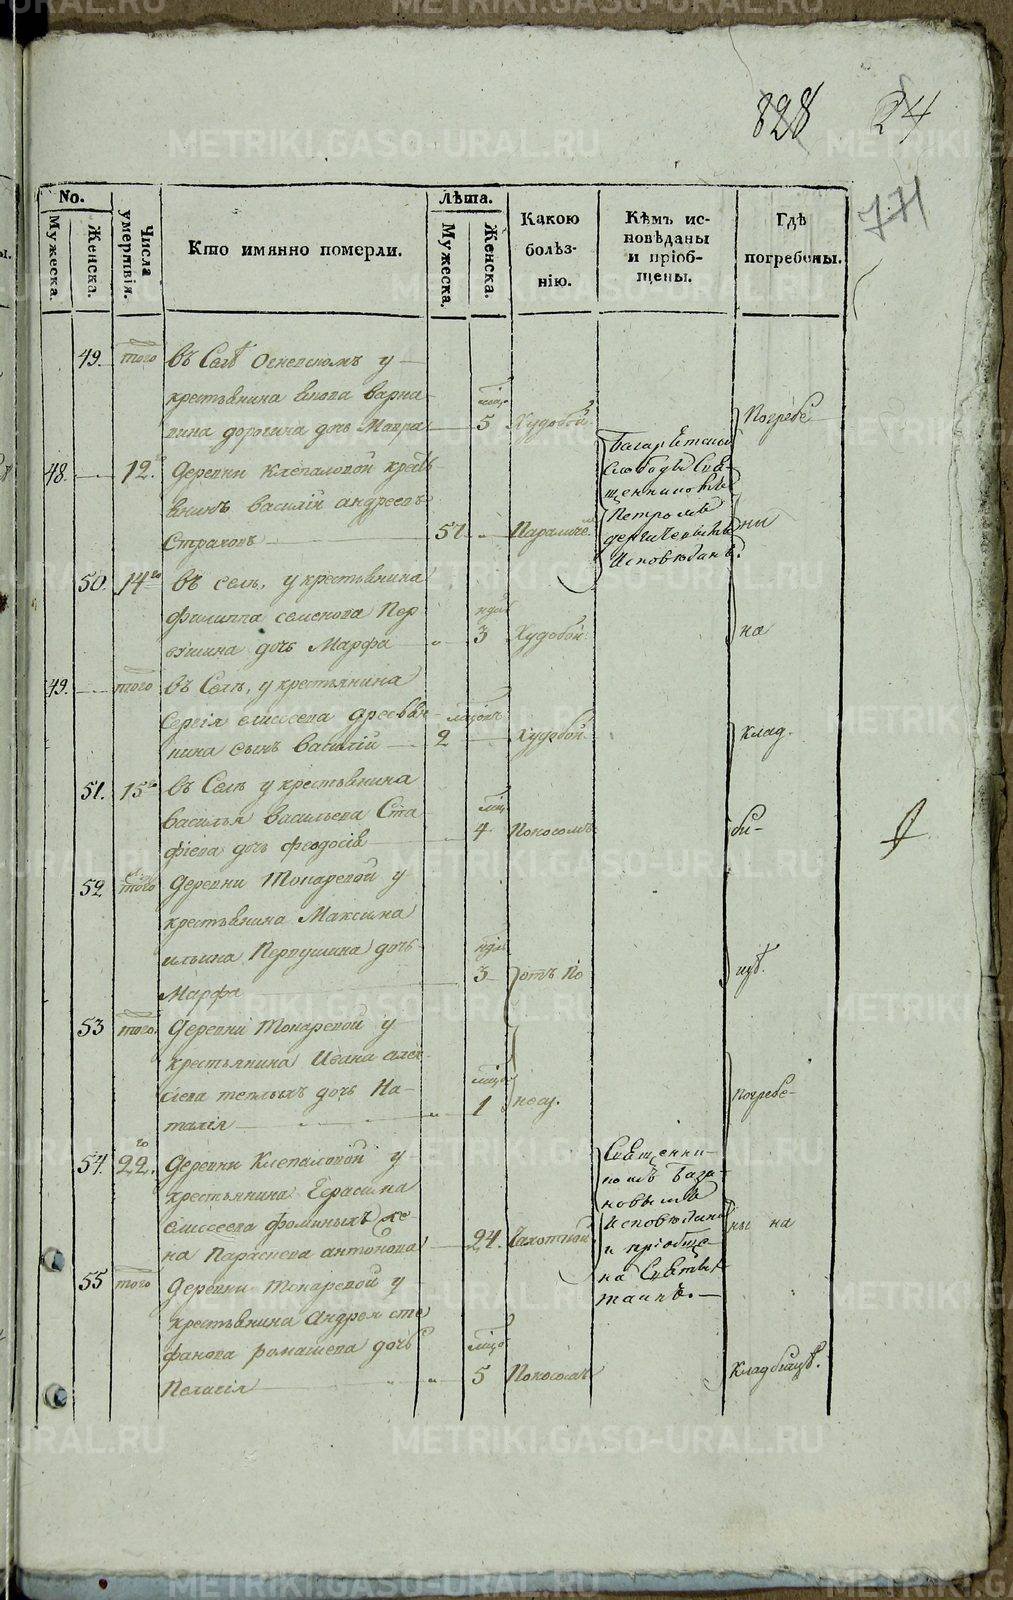 828 24
771
No.
Мужеска.
Женска.
Числа умертвія.
Кто имянно померли.
Лѣта.
Мужеска.
Женска.
Какою болѣз-
нію.
Кѣмъ ис-
повѣданы
и пріоб-
щены.
Гдѣ
погребены.
49. того въ Селѣ у
крестьянина
дочь Мавра 5 Худобой Погребе
48. 12. Деревни Клепаловой крест
янинъ василій андреевъ
Страховъ 57 Параличе. ны
слободы Свя-
щенникомъ
Петромъ
Исповѣданъ.
50. 14го въ селѣ, у крестьянина
филиппа семенова Пер
дочь Марфа ндль 3 Худобой на
49. того въ Селѣ, у крестьянина
Сергія елисеева древя
нина сынъ василій 2 Худобой клад.
51. 15го въ Селѣ у крестьянина
василья васильева Ста
фіева дочь феодосія 4 Поносомъ би-
52. того Деревни Токаревой у
крестьянина Максима
ильина Первушина дочь
Марфа ндль 3 отъ По щѣ.
53 того Деревни Токаревой у
крестьянина Ивана алек
сіева теплыхъ дочь На-
талія 1 носу. погребе-
54. 22го. Деревни Клепаловой у
крестьянина Герасима
Елисеева фоминыхъ же-
на Параскева антонова 24. Чахоткой ны на
Священни-
комъ Бага-
новымъ
Исповѣдана
и пріобще-
на Святых
таинъ.
55 того Деревни Токаревой у
крестьянина Андрея сте
фанова ромашева дочь
Пелагія 5 Поносомъ Кладбищѣ.
METRIKI.GASO-URAL.RU